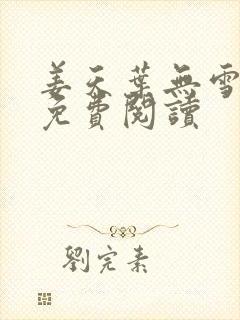 姜天葉無雪
免費閱讀
劉完素